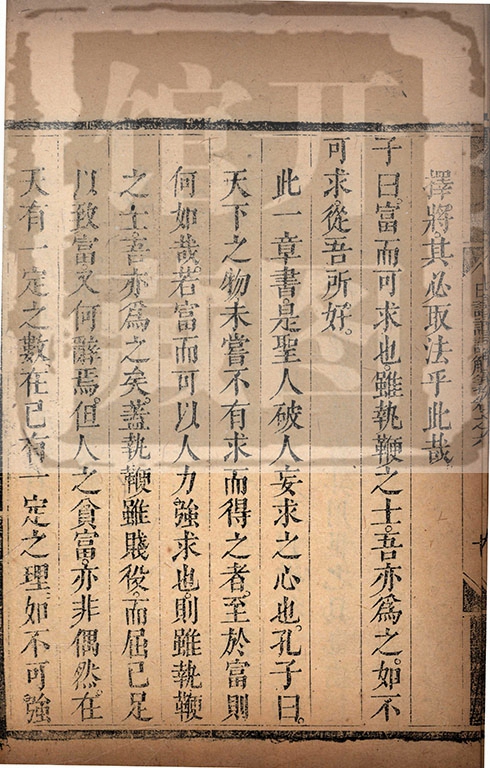 擇將其必取法乎此哉
子曰富而可求也雖執鞭之士吾亦爲之如不
可求從吾所好
此一章書是聖人破人妄求之心也孔子曰
天下之物未嘗不有求而得之者至於富則
何如哉若富而可以人力強求也則雖執鞭
之士吾亦爲之矣蓋執鞭雖賤役而屈已足
以致富又何辭焉但人之貧富亦非偶然在
天有一定之數在已有一定之理如不可強